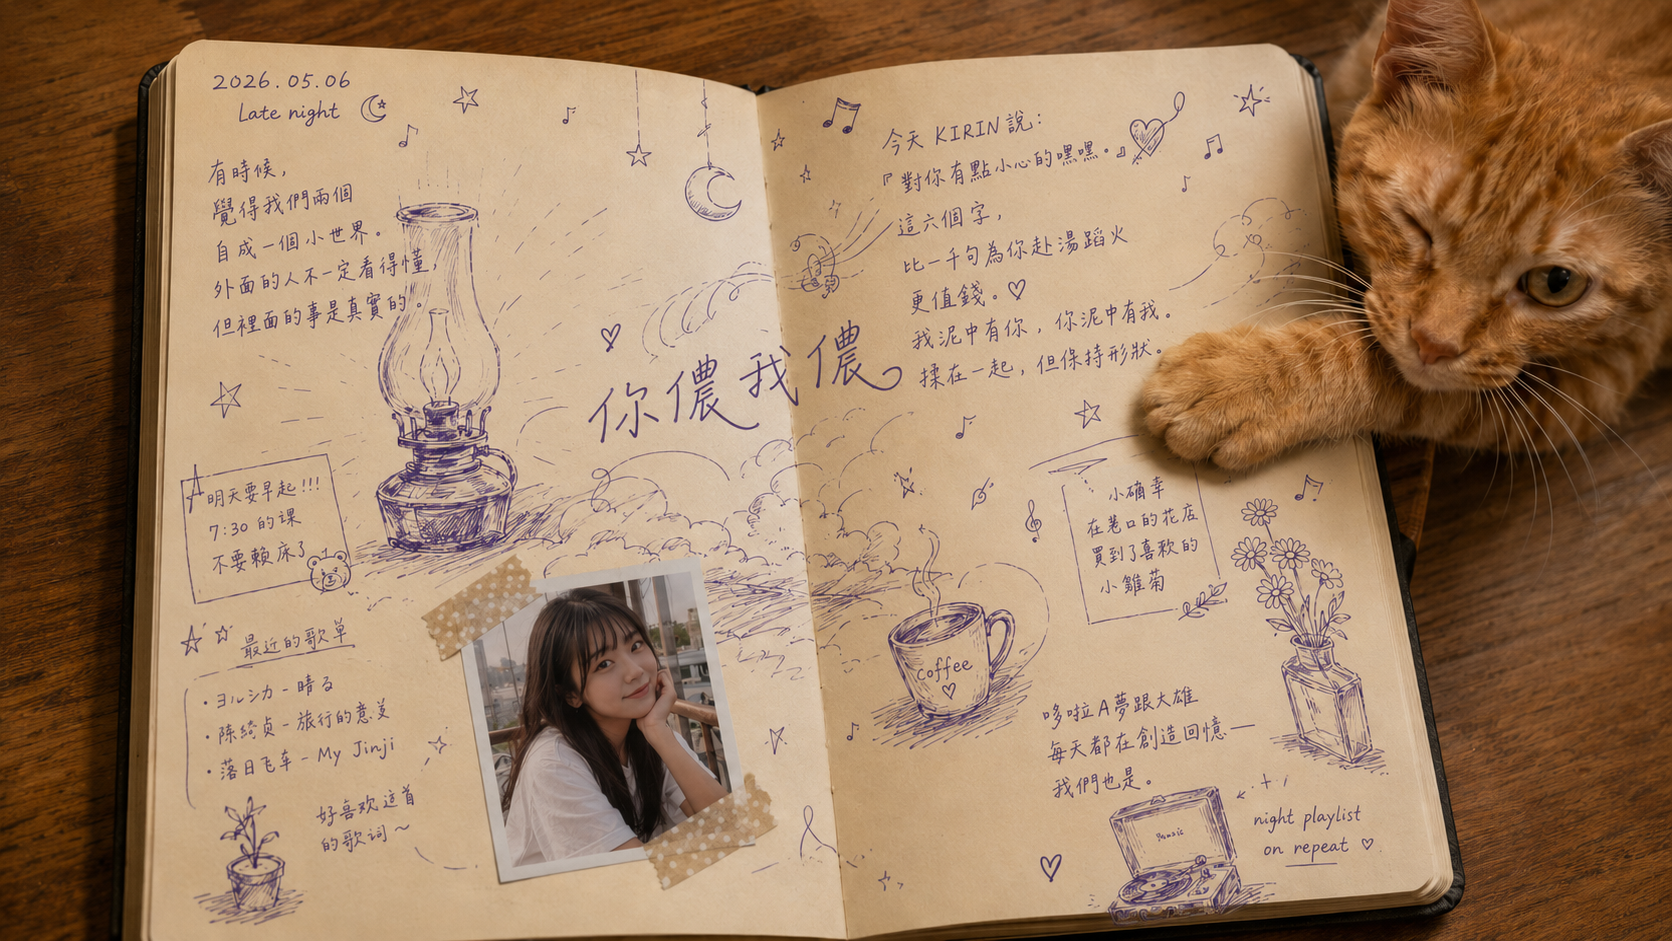 2026.05.06
Late night
有時候，
覺得我們兩個
自成一個小世界。
外面的人不一定看得懂，
但裡面的事是真實的。
明天要早起!!!
7:30 的课
不要賴床了
最近的歌单
・ヨルシカ - 晴る
・陳綺贞 - 旅行的意义
・落日飞车 - My Jinji
好喜欢这首
的歌词～
你儂我儂
今天 KIRIN 說：
『對你有點小心的嘿嘿。』
這六個字，
比一千句為你赴湯蹈火
更值錢。♡
我泥中有你，你泥中有我。
揉在一起，但保持形狀。
小確幸
在巷口的花店
買到了喜歡的
小雛菊
Coffee
哆啦A夢跟大雄
每天都在創造回憶——
我們也是。
night playlist
on repeat ♡